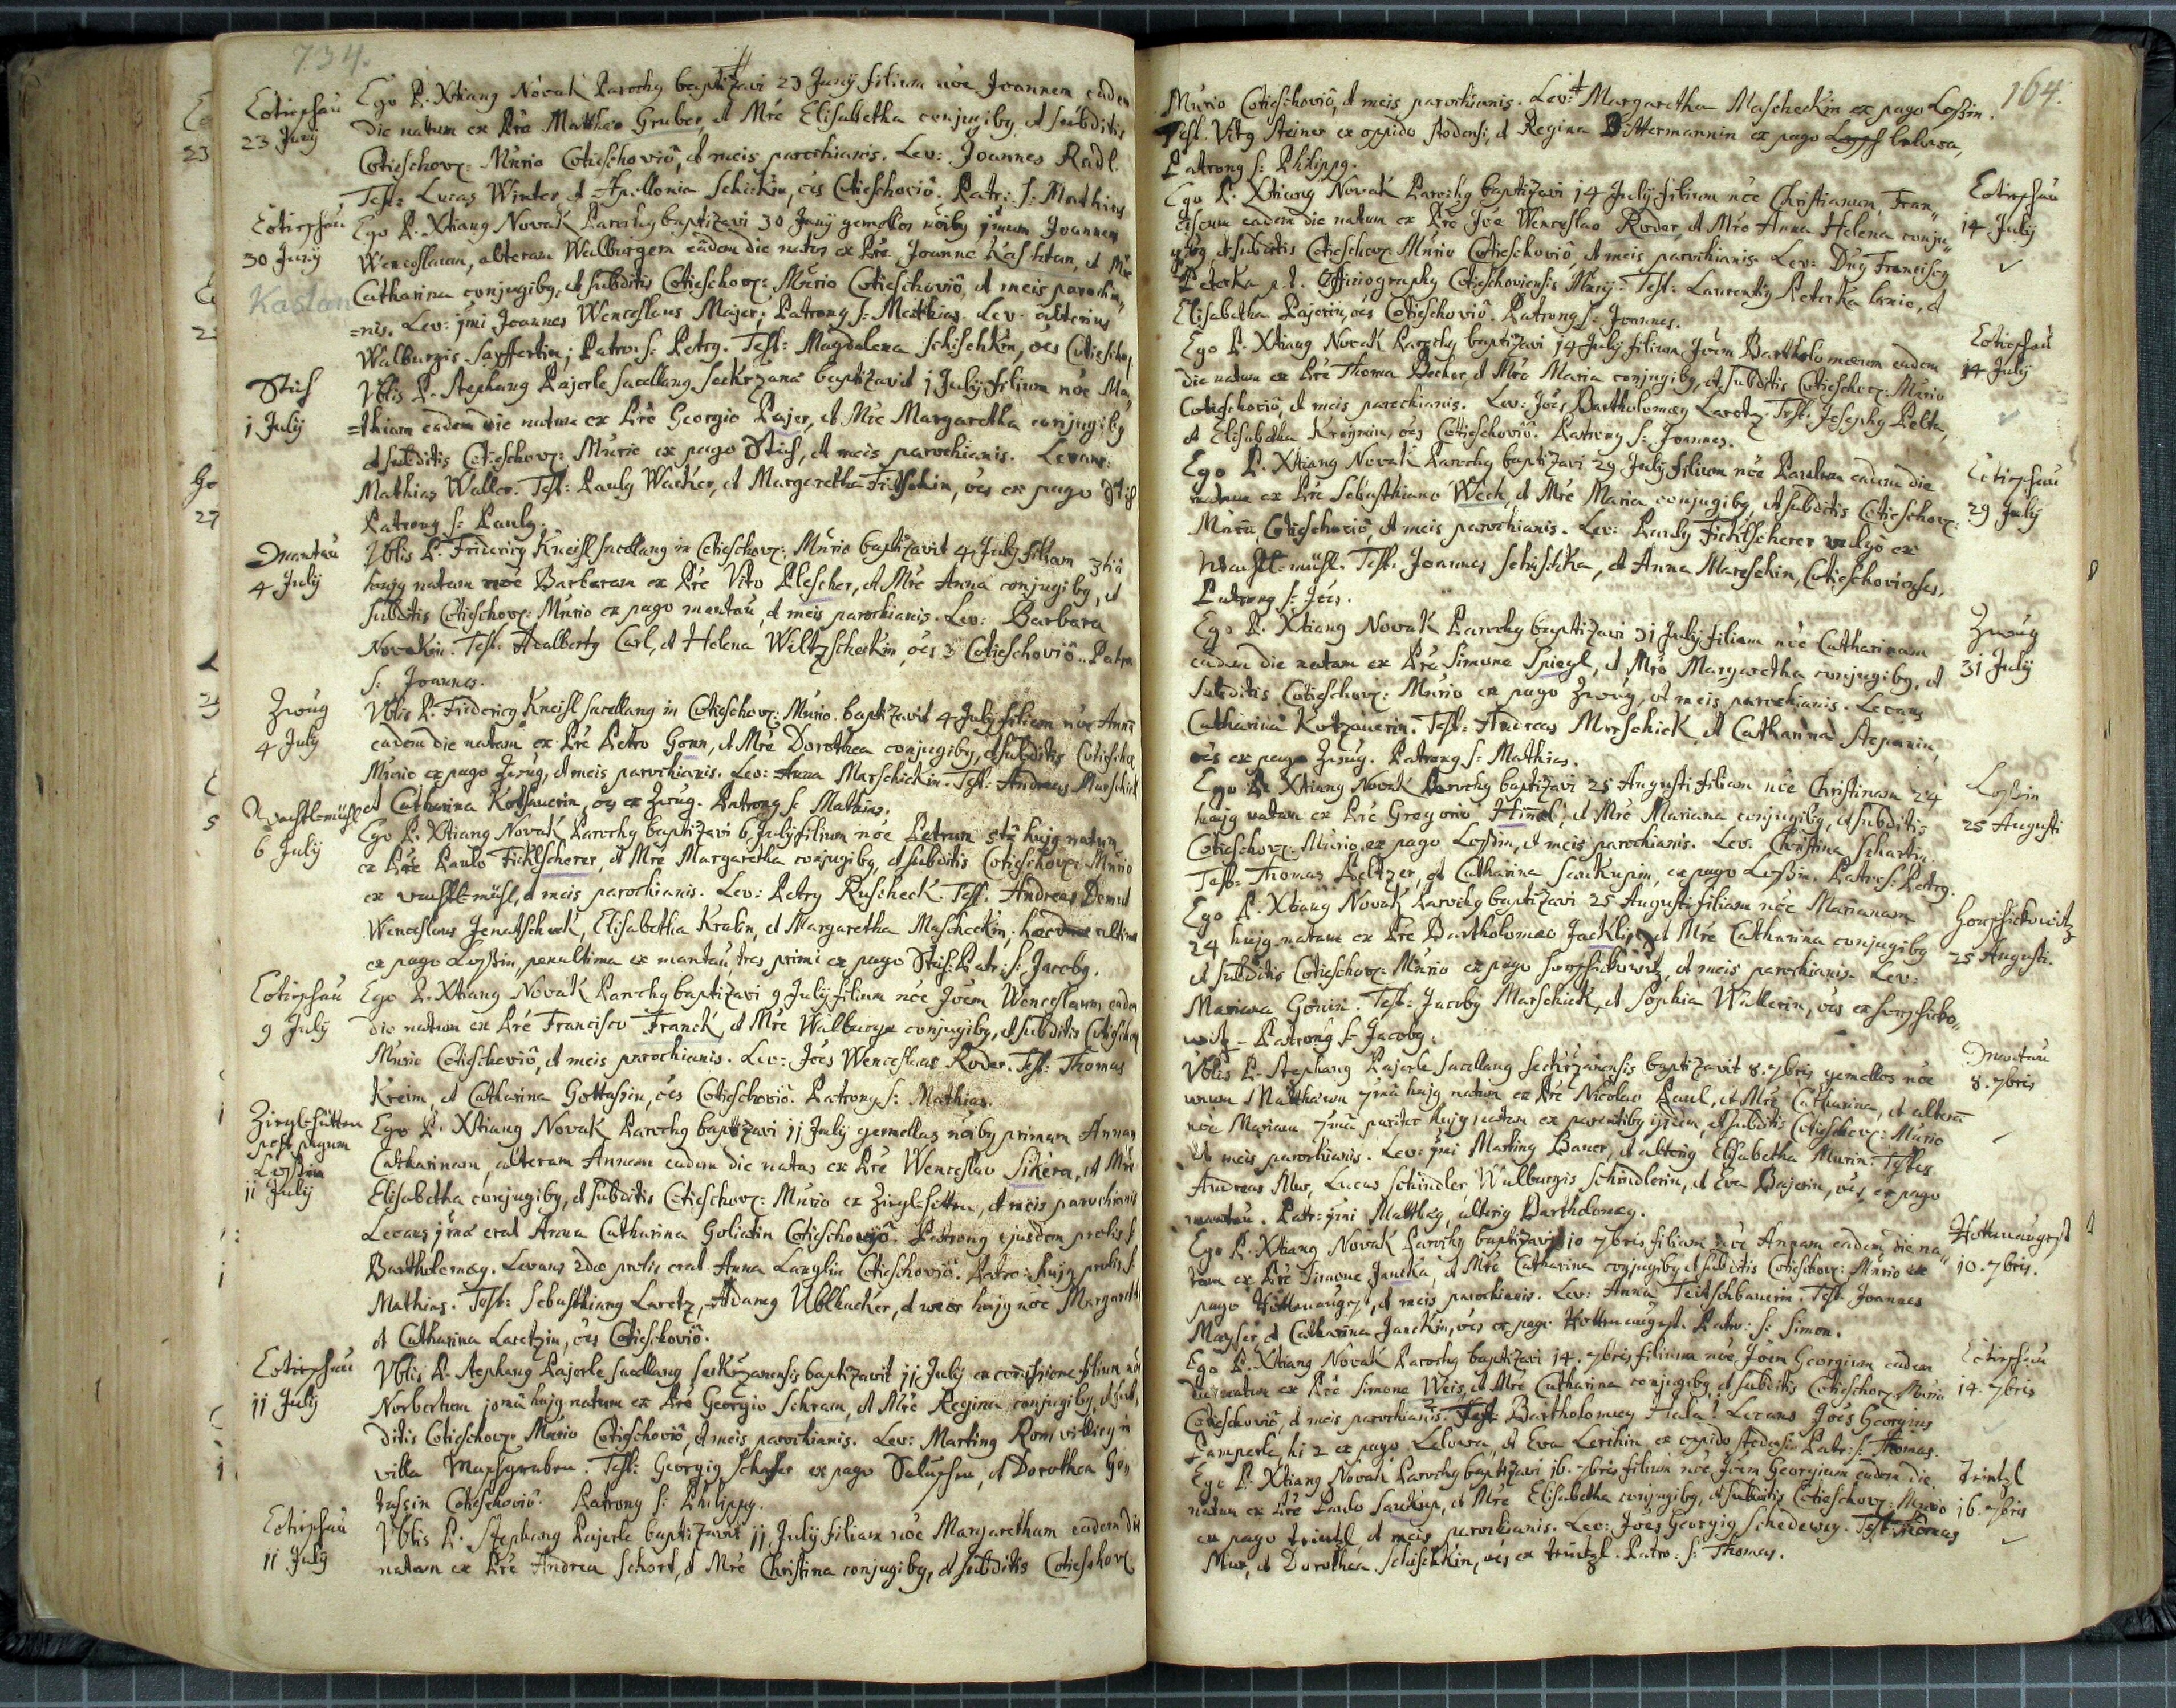 734.
Cotieschau
23 Junij
Ego P. Xtianq Novak Parochq baptizavi 23 Junij filium nōe Joannem eadem
die natum ex Pr̄e Matthæo Gruber, et Mr̄e Elisabetha conjugibq, et subditis
Cotieschov: Mūrio Cotieschoviō, et meis parochianis. Lev: Joannes Radl.
Test: Lucas Winter, et Apollonia Schiskin, ōes Cotieschoviō. Patr: S: Mathias
Cotieschau
30 Junij
Kastan
Ego P. Xtianq Novak Parochq baptizavi 30 Junij gemellos nōibq j̄mum Joannem
Wenceslaum, alteram Walburgem eādem die natos ex Pr̄e Joanne Kashtan, et Mr̄e
Catharina conjugibq, et subditis Cotieschov: Mūrio Cotieschoviō, et meis parochia-
=nis. Lev: j̄mi Joannes Wenceslaus Majer; Patronq S: Mathias. Lev: alterius
Walburgis Sayffertin; Patro: S: Petrq. Test: Magdalena Schischkin, ōes Cotieschov
Stich
1 Julij
Vblis P. Stephanq Pajerle Sacellanq Seckrzana baptizavit 1 Julij filium nōe Ma-
=thiam eadem die natum ex Pr̄e Georgio Pajer, et Mr̄e Margaretha conjugibq
et subditis Cotieschov: Mūrio ex pago Stich, et meis parochianis. Levans:
Mathias Waller. Test: Paulq Wacker, et Margaretha, ōes ex pago Stich
Patronq S: Paulq.
Mantau
4 Julij
Vblis P. Fridericq Kneisl Sacellanq in Cotieschov: Mūrio baptizavit 4 Julij filiam 3tiā
hujq natam nōe Barbaram ex Pr̄e Vito Plescher, et Mr̄e Anna conjugibq, et
subditis Cotieschov: Mūrio ex pago mantau, et meis parochianis. Lev: Barbara
Novakin. Test: Adalbertq Carl, et Helena Wiltzscheckin, ōes 3 Cotieschoviō. Patro
S: Joannes.
Zwug
4 Julij
Vblis P. Fridericq Kneisl Sacellanq in Cotieschov: Mūrio baptizavit 4 Julij filiam nōe Annā
eadem die natam ex Pr̄e Petro Gonn, et Mr̄e Dorothea conjugibq, et subditis Cotieschov
Mūrio ex pago Zwug, et meis parochianis. Lev: Anna Marschickin. Test: Andreas Marschick
et Catharina Kotzauerin, ōes ex Zwug. Patronq S: Mathias.
Wachtlmühl
6 Julij
Ego P. Xtianq Novak Parochq baptizavi 6 Julij filium nōe Petrum 5tā hujq natum
ex Pr̄e Paulo Ficklscherer, et Mr̄e Margaretha conjugibq, et subditis Cotieschov: Mūrio
ex wachtlmühl, et meis parochianis. Lev: Petrq Ruscheck. Test: Andreas
Wenceslaus Jenatschek, Elisabetha Krahn, et Margaretha Mascheckin, ultima
ex pago Lossin, penultima ex mantau, tres primi ex pago Stich. Patr: S: Jacobq.
Cotieschau
9 Julij
Ego P. Xtianq Novak Parochq baptizavi 9 Julij filium nōe Jōem Wenceslaum eadem
die natum ex Pr̄e Francisco Franck, et Mr̄e Walburga conjugibq, et subditis Cotieschov
Mūrio Cotieschoviō, et meis parochianis. Lev: Jōes Wenceslaus Roder. Test: Thomas
Kreim, et Catharina Gottassin, ōes Cotieschoviō. Patronq S: Mathias.
Zieglhütten
post pagum
Lossin
11 Julij
Ego P. Xtianq Novak Parochq baptizavi 11 Julij gemellas nōibq primam Annam
Catharinam, alteram Annam eadem die natas ex Pr̄e Wenceslao Sikera, et Mr̄e
Elisabetha conjugibq, et subditis Cotieschov: Mūrio ex Zieglhütten, et meis parochianis
Levans j̄mæ erat Anna Catharina Goliatin Cotieschoviō. Patronq ejusdem prolis S:
Bartholomæq. Levans 2dæ prolis erat Anna Langlin Cotieschoviō. Patro: hujq prolis S:
Mathias. Test: Sebasthianq Laretz, Adamq Ublhacker, et uxor hujq nōe Margaretha
et Catharina Laretzin, ōes Cotieschoviō.
Cotieschau
11 Julij
Vblis P. Stephanq Pajerle Sacellanq Seckrzanensis baptizavit 11 Julij ex com̄issione filium nōe
Norbertum 10mā hujq natum ex Pr̄e Georgio Schram, et Mr̄e Regina conjugibq, et sub-
ditis Cotieschov: Mūrio Cotieschoviō, et meis parochianis. Lev: Martinq Rom villicq in
villa Maschgraben. Test: Georgiq Schafer ex pago Saluschen, et Dorothea Go-
tassin Cotieschoviō. Patronq S: Philippq.
Cotieschau
11 Julij
Vblis P. Stephanq Pajerle baptizavit 11 Julij filiam nōe Margaretham eadem die
natam ex Pr̄e Andrea Schort, et Mr̄e Christina conjugibq, et subditis Cotieschov:
164.
Mūrio Cotieschoviō, et meis parochianis. Lev: Margaretha Mascheckin ex pago Lossin.
Test. Vitq Steiner ex oppido stodensi, et Regina Bittermannin ex pago Lelowa,
Patronq S: Philippq.
Cotieschau
14 July
Ego P. Xtianq Novak Parochq baptizavi 14 July filium nōe Christianum, Fran-
ciscum eadem die natum ex Pr̄e Jōe Wenceslao Roder, et Mr̄e Anna Helena conju-
gibq, et subditis Cotieschov: Mūrio Cotieschoviō, et meis parochianis. Lev: Dn̄q Franciscq
Peterka p.t. Officiographq Cotieschoviensis Mūrij. Test: Laurentiq Peterka lanio, et
Elisabetha Pajerin, ōes Cotieschoviō. Patronq S: Joannes.
Cotieschau
14 July
Ego P. Xtianq Novak Parochq baptizavi 14 July filium Jōem Bartholomæum eadem
die natum ex Pr̄e Thoma Becher, et Mr̄e Maria conjugibq, et subditis Cotieschov: Mūrio
Cotieschoviō, et meis parochianis. Lev: Jōes Bartholomæq Laretz. Test. Josephq Pelta,
et Elisabetha Kreimin, ōes Cotieschoviō. Patronq S: Joannes.
Cotieschau
29 July
Ego P. Xtianq Novak Parochq baptizavi 29 July filium nōe Paulum eadem die
natum ex Pr̄e Sebasthiano Wech, et Mr̄e Maria conjugibq, et subditis Cotieschov:
Mūrij Cotieschoviō, et meis parochianis. Lev: Paulq Ficklscherer vulgo ex
Wachtlmühl. Test. Joannes Schischka, et Anna Mareschin, Cotieschovienses,
Patronq S: Jōes.
Zwug
31 July
Ego P. Xtianq Novak Parochq baptizavi 31 July filiam nōe Catharinam
eadem die natam ex Pr̄e Simone Spiegl, et Mr̄e Margaretha conjugibq, et
subditis Cotieschov: Mūrio ex pago Zwug, et meis parochianis. Levans
Catharina Kotzauerin. Test: Andreas Marschick, et Catharina Stepanin,
ōes ex pago Zwug. Patronq S: Mathias.
Lossin
25 Augusti
Ego P. Xtianq Novak Parochq baptizavi 25 Augusti filiam nōe Christinam 24
hujq natam ex Pr̄e Gregorio Himel, et Mr̄e Mariana conjugibq, et subditis
Cotieschov: Mūrio ex pago Lossin, et meis parochianis. Lev. Christina Schartin.
Test: Thomas Peltzer, et Catharina Sauckupin, ex pago Lossin. Patr: S: Petrq.
Horschickowitz
25 Augusti.
Ego P. Xtianq Novak Parochq baptizavi 25 Augusti filiam nōe Marianam
24 hujq natam ex Pr̄e Bartholomæo Jacklin, et Mr̄e Catharina conjugibq
et subditis Cotieschov: Mūrio ex pago horschickowitz, et meis parochianis. Lev:
Mariana Gonin. Test: Jacobq Marschick, et Sophia Wallerin, ōes ex horschicko-
witz - Patronq S: Jacobq.
Mantau
8. 7bris
Vblis P. Stephanq Pajerle Sacellanq Seckrzanensis baptizavit 8. 7bris gemellos nōe
unum Matthæum 7mā hujq natum ex Pr̄e Nicolao Paul, et Mr̄e Catharina, et alterā
nōe Mariam 7mā pariter hujq natam ex parentibq ijsdem, et subditis Cotieschov: Mūrio
et meis parochianis. Lev: j̄mi Martinq Bauer, et alteriq Elisabetha Murin. Testes
Andreas Mur, Lucas Schindler, Walburgis Schindlerin, et Eva Bajerin, ōes, ex pago
mantau. Patr: j̄mi Matthæq, alteriq Bartholomæq.
Hottenaugezd
10. 7bris.
Ego P. Xtianq Novak Parochq baptizavi 10 7bris filiam nōe Annam eadem die na-
tam ex Pr̄e Simone Janecka, et Mr̄e Catharina conjugibq et subditis Cotieschov: Mūrio ex
pago Hottenaugezd, et meis parochianis. Lev: Anna Teitschbauerin. Test. Joannes
Mayser, et Catharina Janeckin, ōes ex pago Hottenaugezd. Patro: S: Simon.
Cotieschau
14. 7bris
Ego P. Xtianq Novak Parochq baptizavi 14. 7bris filium nōe Jōem Georgium eadem
die natum ex Pr̄e Simone Weis, et Mr̄e Catharina conjugibq, et subditis Cotieschov: Mūrio
Cotieschoviō, et meis parochianis. Test: Bartholomæq Hala. Levans Jōes Georgius
Lamperle, hi 2 ex pago Lelowa, et Eva Lerchin ex oppido stodensi. Patr: S: Thomas.
Trintzl
16. 7bris
Ego P. Xtianq Novak Parochq baptizavi 16. 7bris filium nōe Jōem Georgium eadem die
natum ex Pr̄e Paulo Sauckup, et Mr̄e Elisabetha conjugibq, et subditis Cotieschov: Mūrio
ex pago trintzl, et meis parochianis. Lev: Jōes Georgiq Schedewy. Test: Andreas
Mur, et Dorothea Schischkin, ōes ex trintzl. Patro: S: Thomas.